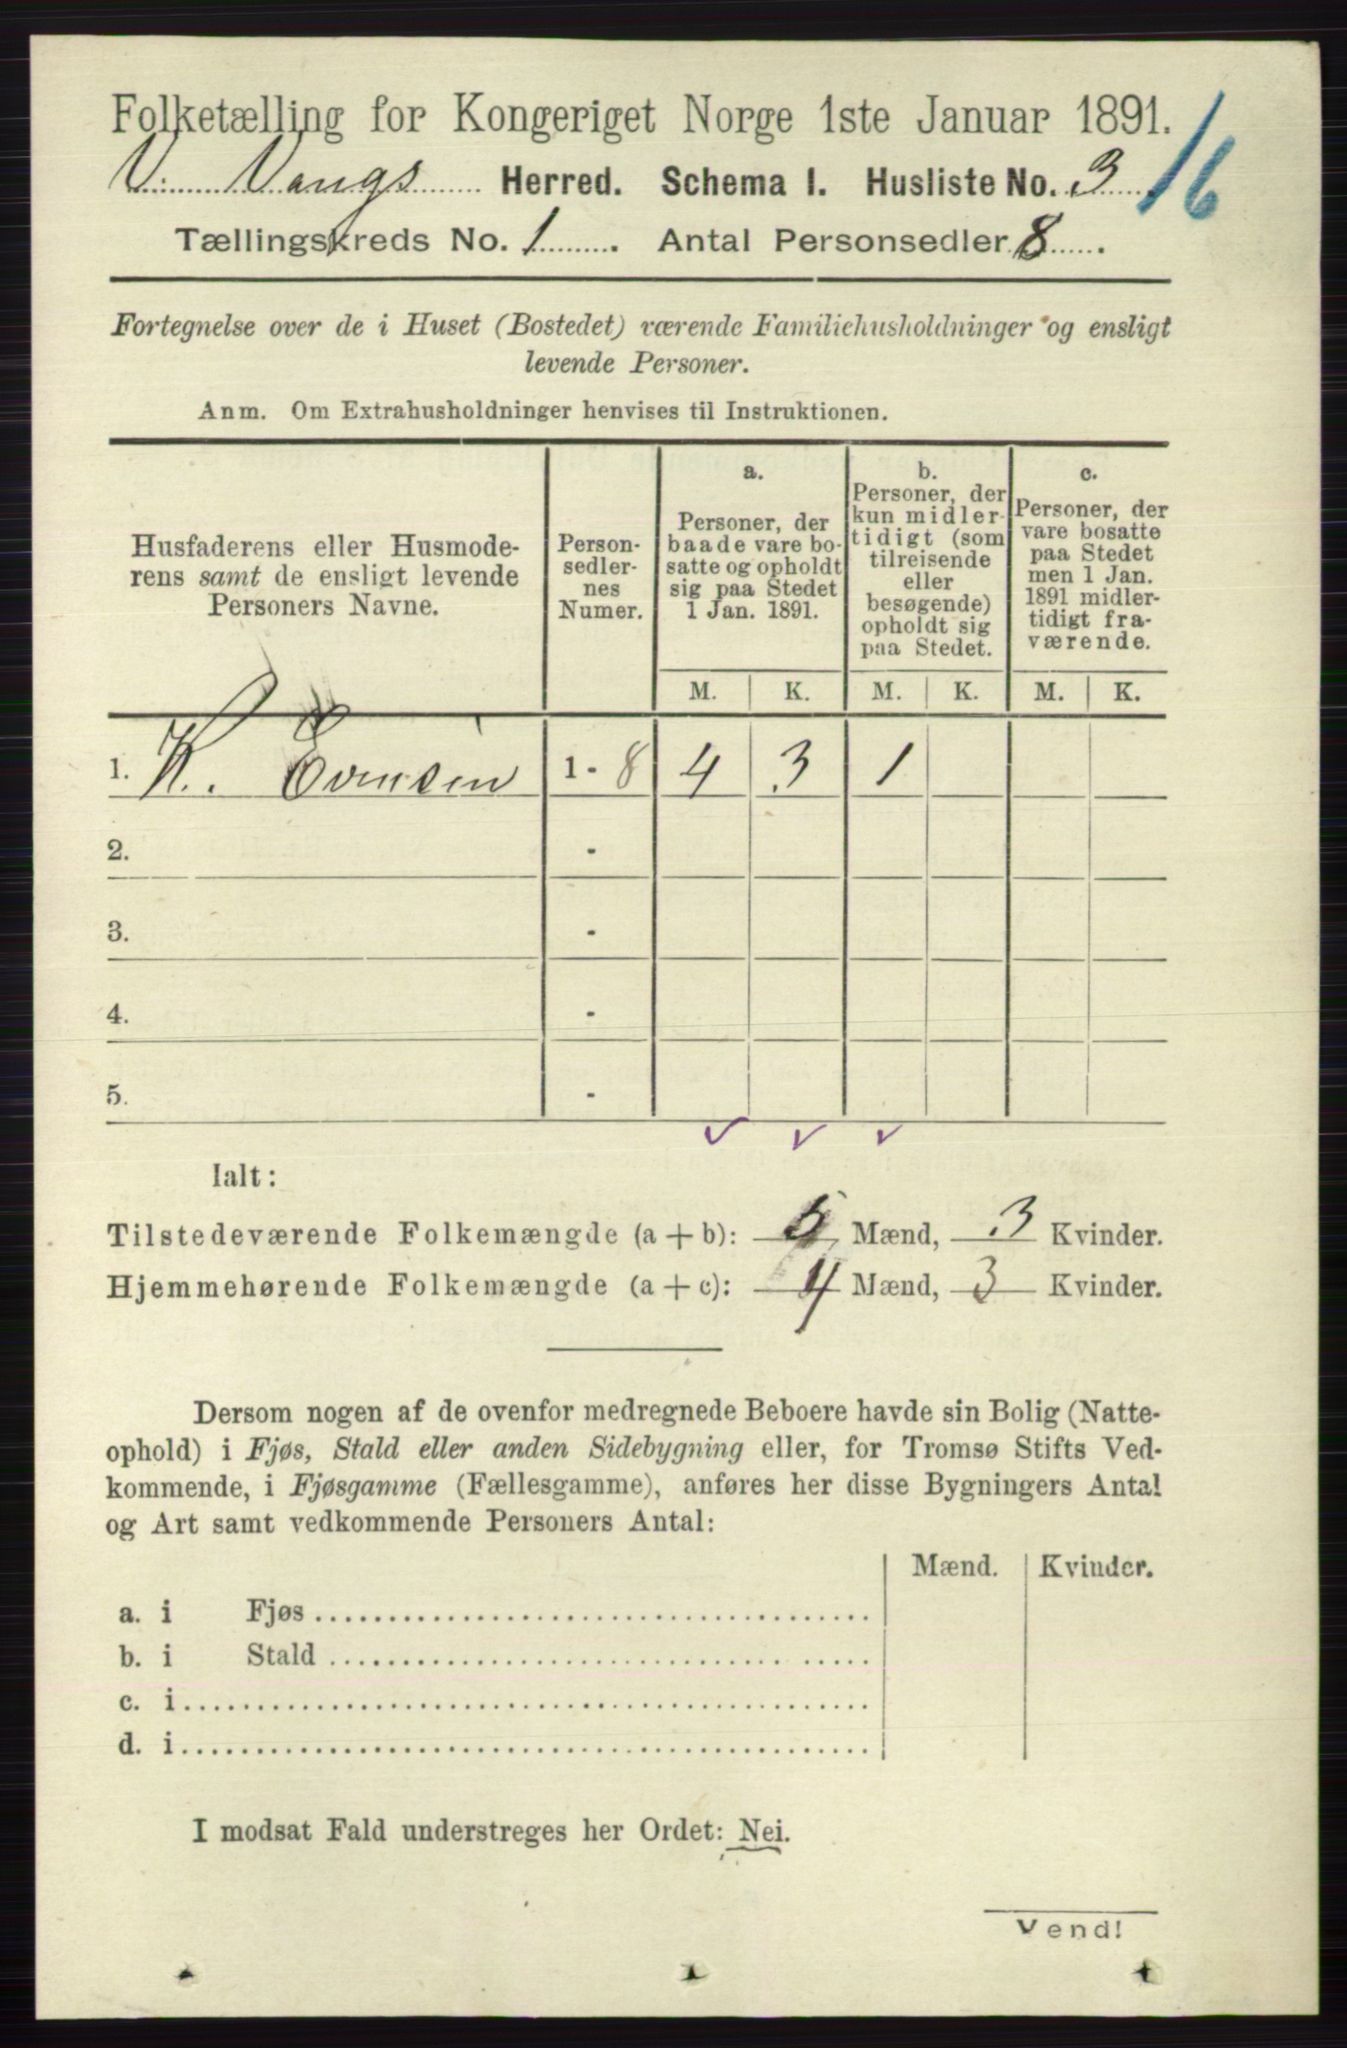 Folketælling for Kongeriget Norge 1ste Januar 1891.
V. Vangs Herred. Schema I. Husliste No. 3 16
Tællingskreds No. 1. Antal Personsedler 8.
Fortegnelse over de i Huset (Bostedet) værende Familiehusholdninger og ensligt
levende Personer.
Anm. Om Extrahusholdninger henvises til Instruktionen.
Husfaderens eller Husmode-
rens samt de ensligt levende
Personers Navne.
Person-
sedler-
nes
Numer.
a.
Personer, der
baade vare bo-
satte og opholdt
sig paa Stedet
1 Jan. 1891.
b.
Personer, der
kun midler-
tidigt (som
tilreisende
eller
besøgende)
opholdt sig
paa Stedet.
c.
Personer, der
vare bosatte
paa Stedet
men 1 Jan.
1891 midler-
tidigt fra-
værende.
M. K. M. K. M. K.
1. K. Evensen 1 - 8 4 3 1
2. -
3. -
4. -
5. -
Ialt:
Tilstedeværende Folkemængde (a + b): 5 Mænd, 3 Kvinder.
Hjemmehørende Folkemængde (a + c): 4 Mænd, 3 Kvinder.
Dersom nogen af de ovenfor medregnede Beboere havde sin Bolig (Natte-
ophold) i Fjøs, Stald eller anden Sidebygning eller, for Tromsø Stifts Ved-
kommende, i Fjøsgamme (Fællesgamme), anføres her disse Bygningers Antal
og Art samt vedkommende Personers Antal:
Mænd. Kvinder.
a. i Fjøs
b. i Stald
c. i
d. i
I modsat Fald understreges her Ordet: Nei.
Vend!